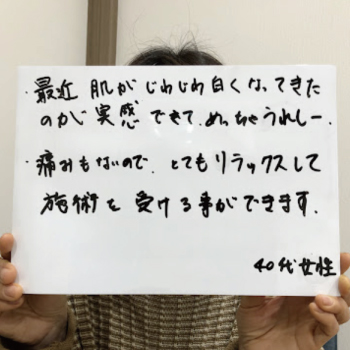 ・最近 肌がじわじわ白くなってきた
のが実感できて、めっちゃうれしー。
・痛みもないので、とてもリラックスして
施術を受ける事ができます。
40代女性